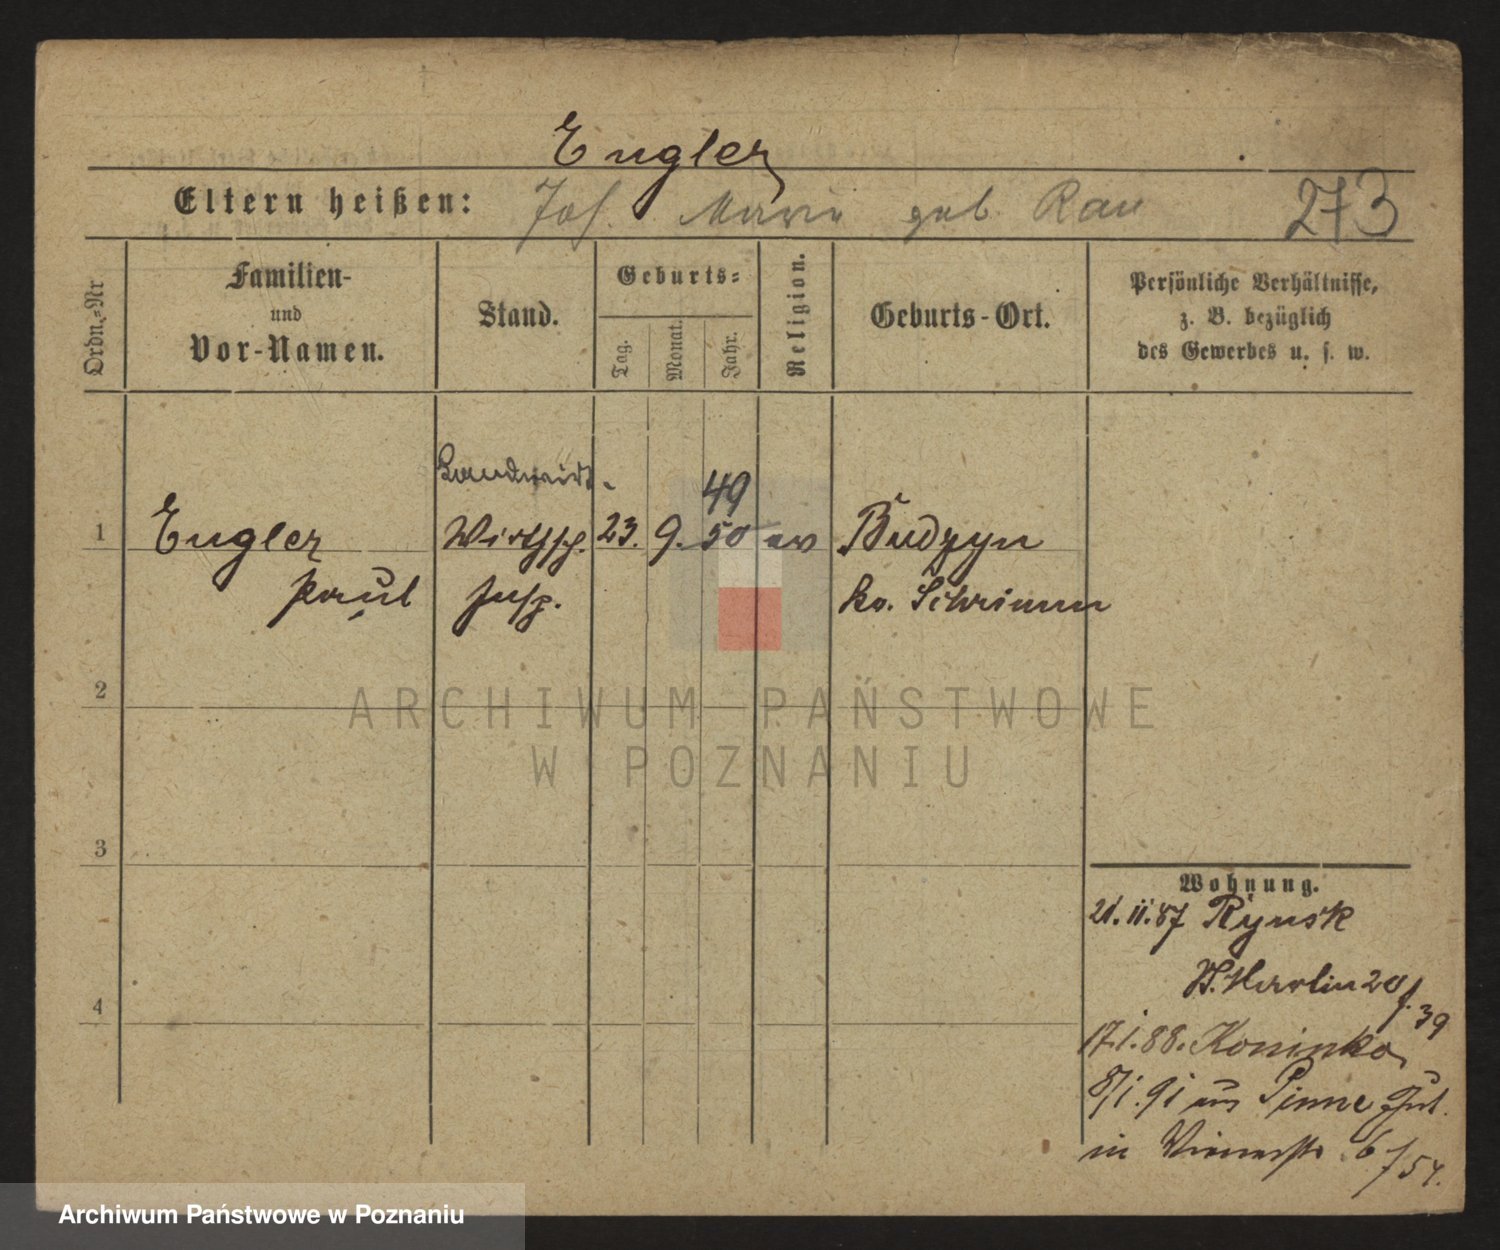 Engler
Eltern heißen: Jos. Marie geb Rau 273
Ordn.-Nr
Familien-
und
Vor-Namen.
Stand.
Geburts-
Tag.
Monat.
Jahr.
Religion.
Geburts-Ort.
Persönliche Verhältnisse,
z. B. bezüglich
des Gewerbes u. s. w.
Landwirt-
49
1 Engler Wirthsch. 23. 9. 50 ev Budzyn
Paul Insp. Kr. Schrimm
2
3
4
Wohnung.
21.11.87 Rynsk
St. Martin 20 f. 39
17.1.88. Koninko
8/1.91 aus Pinne
in 6/54.
ARCHIWUM PAŃSTWOWE
W POZNANIU
Archiwum Państwowe w Poznaniu